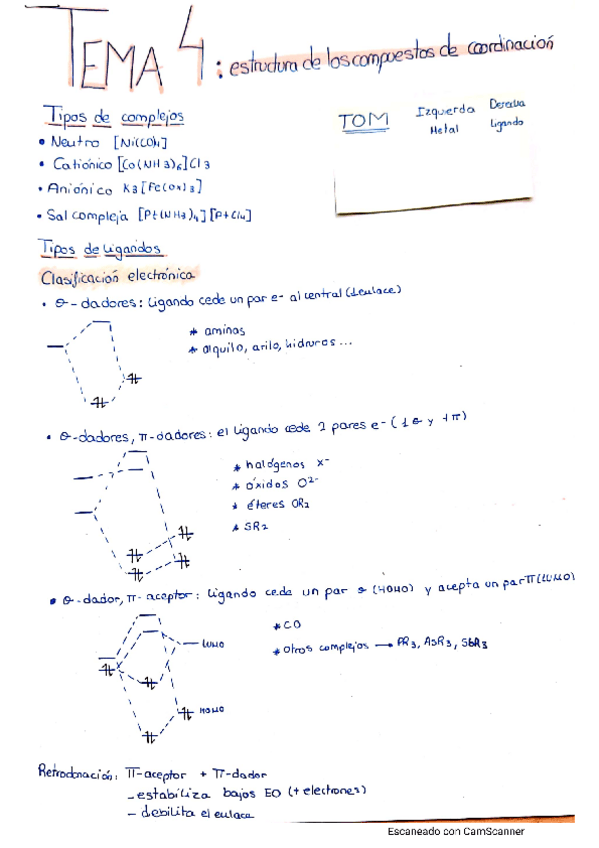 TEMA 4: estructura de los compuestos de coordinación
Tipos de complejos
• Neutro [Ni(CO)4]
• Catiónico [Co(NH3)6]Cl3
• Aniónico K3[Fe(ox)3]
• Sal compleja [Pt(NH3)4][PtCl4]
TOM Izquierda Metal Derecha ligando
Tipos de ligandos
Clasificación electrónica
• σ-dadores: Ligando cede un par e- al central (1 enlace)
* aminas
* alquilo, arilo, hidruros...
• σ-dadores, π-dadores: el ligando cede 2 pares e- (1σ y 1π)
* halógenos X-
* óxidos O2-
* éteres OR2
* SR2
• σ-dador, π-aceptor: Ligando cede un par σ (HOMO) y acepta un par π (LUMO)
LUMO
HOMO
* CO
* Otros complejos → PR3, AsR3, SbR3
Retrodonación: π-aceptor + π-dador
- estabiliza bajos EO (+ electrones)
- debilita el enlace
Escaneado con CamScanner